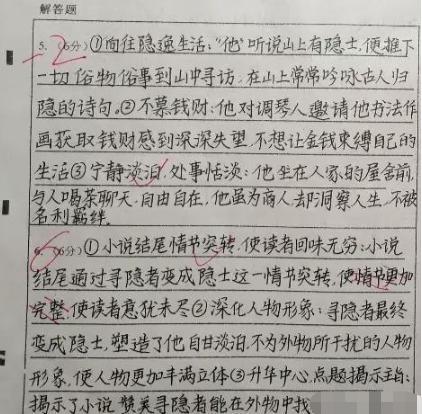 解答题
5. (6分) ①向住隐逸生活:“他”听说山上有隐士,便推下
一切俗物俗事到山中寻访,在山上常常吟咏古人归
隐的诗句。②不慕钱财:他对调琴人邀请他书法作
画获取钱财感到深深失望,不想让金钱束缚自己的
生活③宁静淡泊,处事恬淡:他坐在人家的屋舍前,
与人喝茶聊天,自由自在,他虽为商人却洞察人生,不被
名利羁绊.
-2
6. (6分) ①小说结尾情节突转,使读者回味无穷:小说
结尾通过寻隐者变成隐士这一情节突转,使情节更加
完整,使读者意犹未尽②深化人物形象:寻隐者最终
变成隐士,塑造了他自甘淡泊,不为外物所干扰的人物
形象,使人物更加丰满立体③升华中心,点题揭示主旨:
揭示了小说 赞美寻隐者能在外物中找